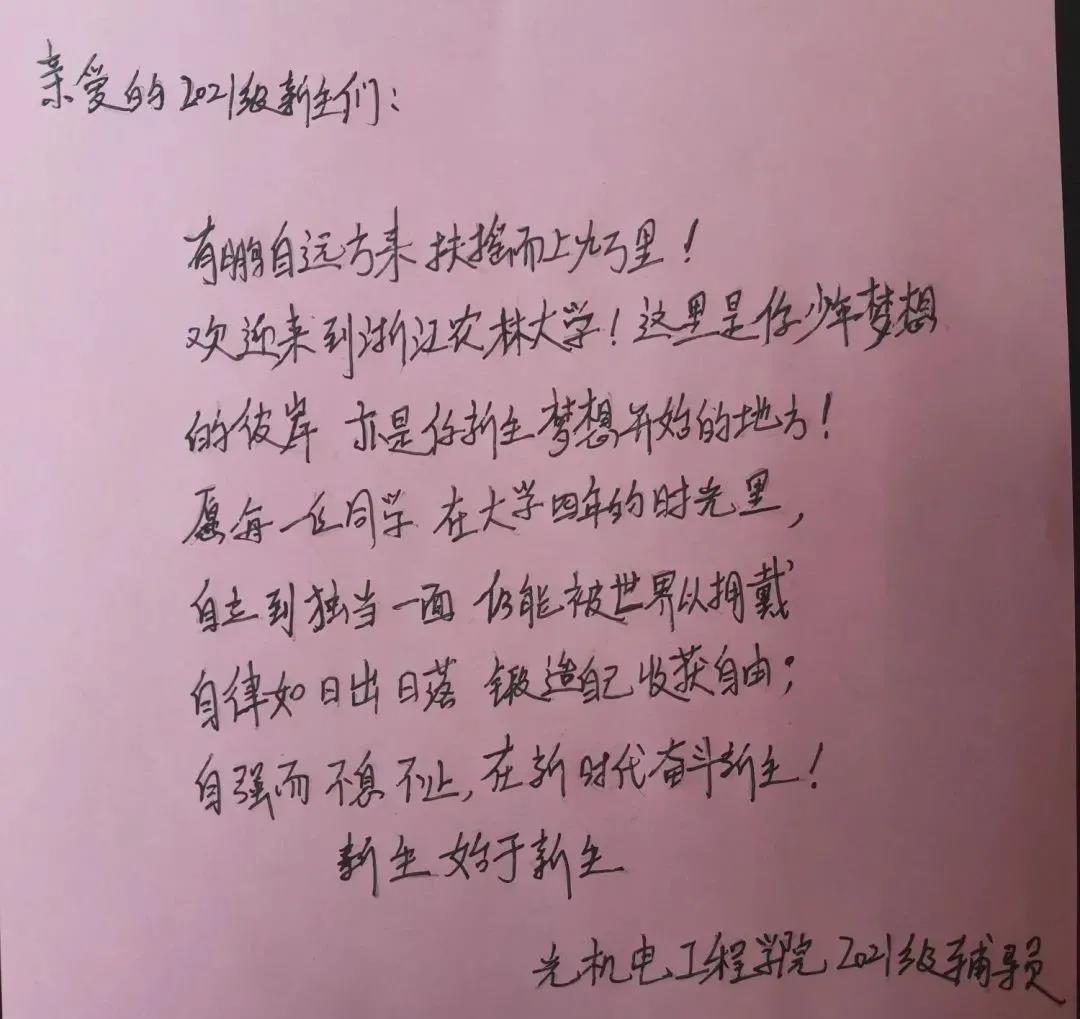 亲爱的2021级新生们：
有鹏自远方来 扶摇而上九万里！
欢迎来到浙江农林大学！这里是你少年梦想
的彼岸 亦是你新生梦想开始的地方！
愿每一位同学 在大学四年的时光里，
自立到独当一面 仍能被世界以拥戴
自律如日出日落 锻造自己收获自由；
自强而不息不止，在新时代奋斗新生！
新生始于新生
光机电工程学院2021级辅导员